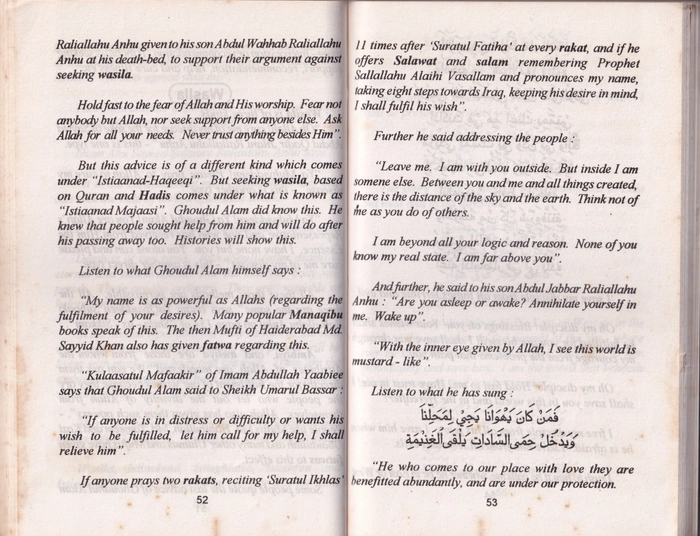 Raliallahu Anhu given to his son Abdul Wahhab Raliallahu
Anhu at his death-bed, to support their argument against
seeking wasila.
Hold fast to the fear of Allah and His worship. Fear not
anybody but Allah, nor seek support from anyone else. Ask
Allah for all your needs. Never trust anything besides Him”.
But this advice is of a different kind which comes
under “Istiaanad-Haqeeqi”. But seeking wasila, based
on Quran and Hadis comes under what is known as
“Istiaanad Majaasi”. Ghoudul Alam did know this. He
knew that people sought help from him and will do after
his passing away too. Histories will show this.
Listen to what Ghoudul Alam himself says :
“My name is as powerful as Allahs (regarding the
fulfilment of your desires). Many popular Manaqibu
books speak of this. The then Mufti of Haiderabad Md.
Sayyid Khan also has given fatwa regarding this.
“Kulaasatul Mafaakir” of Imam Abdullah Yaabiee
says that Ghoudul Alam said to Sheikh Umarul Bassar :
“If anyone is in distress or difficulty or wants his
wish to be fulfilled, let him call for my help, I shall
relieve him”.
If anyone prays two rakats, reciting ‘Suratul Ikhlas’
52
11 times after ‘Suratul Fatiha’ at every rakat, and if he
offers Salawat and salam remembering Prophet
Sallallahu Alaihi Vasallam and pronounces my name,
taking eight steps towards Iraq, keeping his desire in mind,
I shall fulfil his wish”.
Further he said addressing the people :
“Leave me. I am with you outside. But inside I am
somene else. Between you and me and all things created,
there is the distance of the sky and the earth. Think not of
me as you do of others.
I am beyond all your logic and reason. None of you
know my real state. I am far above you”.
And further, he said to his son Abdul Jabbar Raliallahu
Anhu : “Are you asleep or awake? Annihilate yourself in
me. Wake up”.
“With the inner eye given by Allah, I see this world is
mustard - like”.
Listen to what he has sung :
فَمَنْ كَانَ يَهْوَانَا يَجِي لِمَحَلِّنَا
وَيَدْخُلْ حِمَى السَّادَاتِ يَلْقَى الْغَنِيمَةِ
“He who comes to our place with love they are
benefitted abundantly, and are under our protection.
53